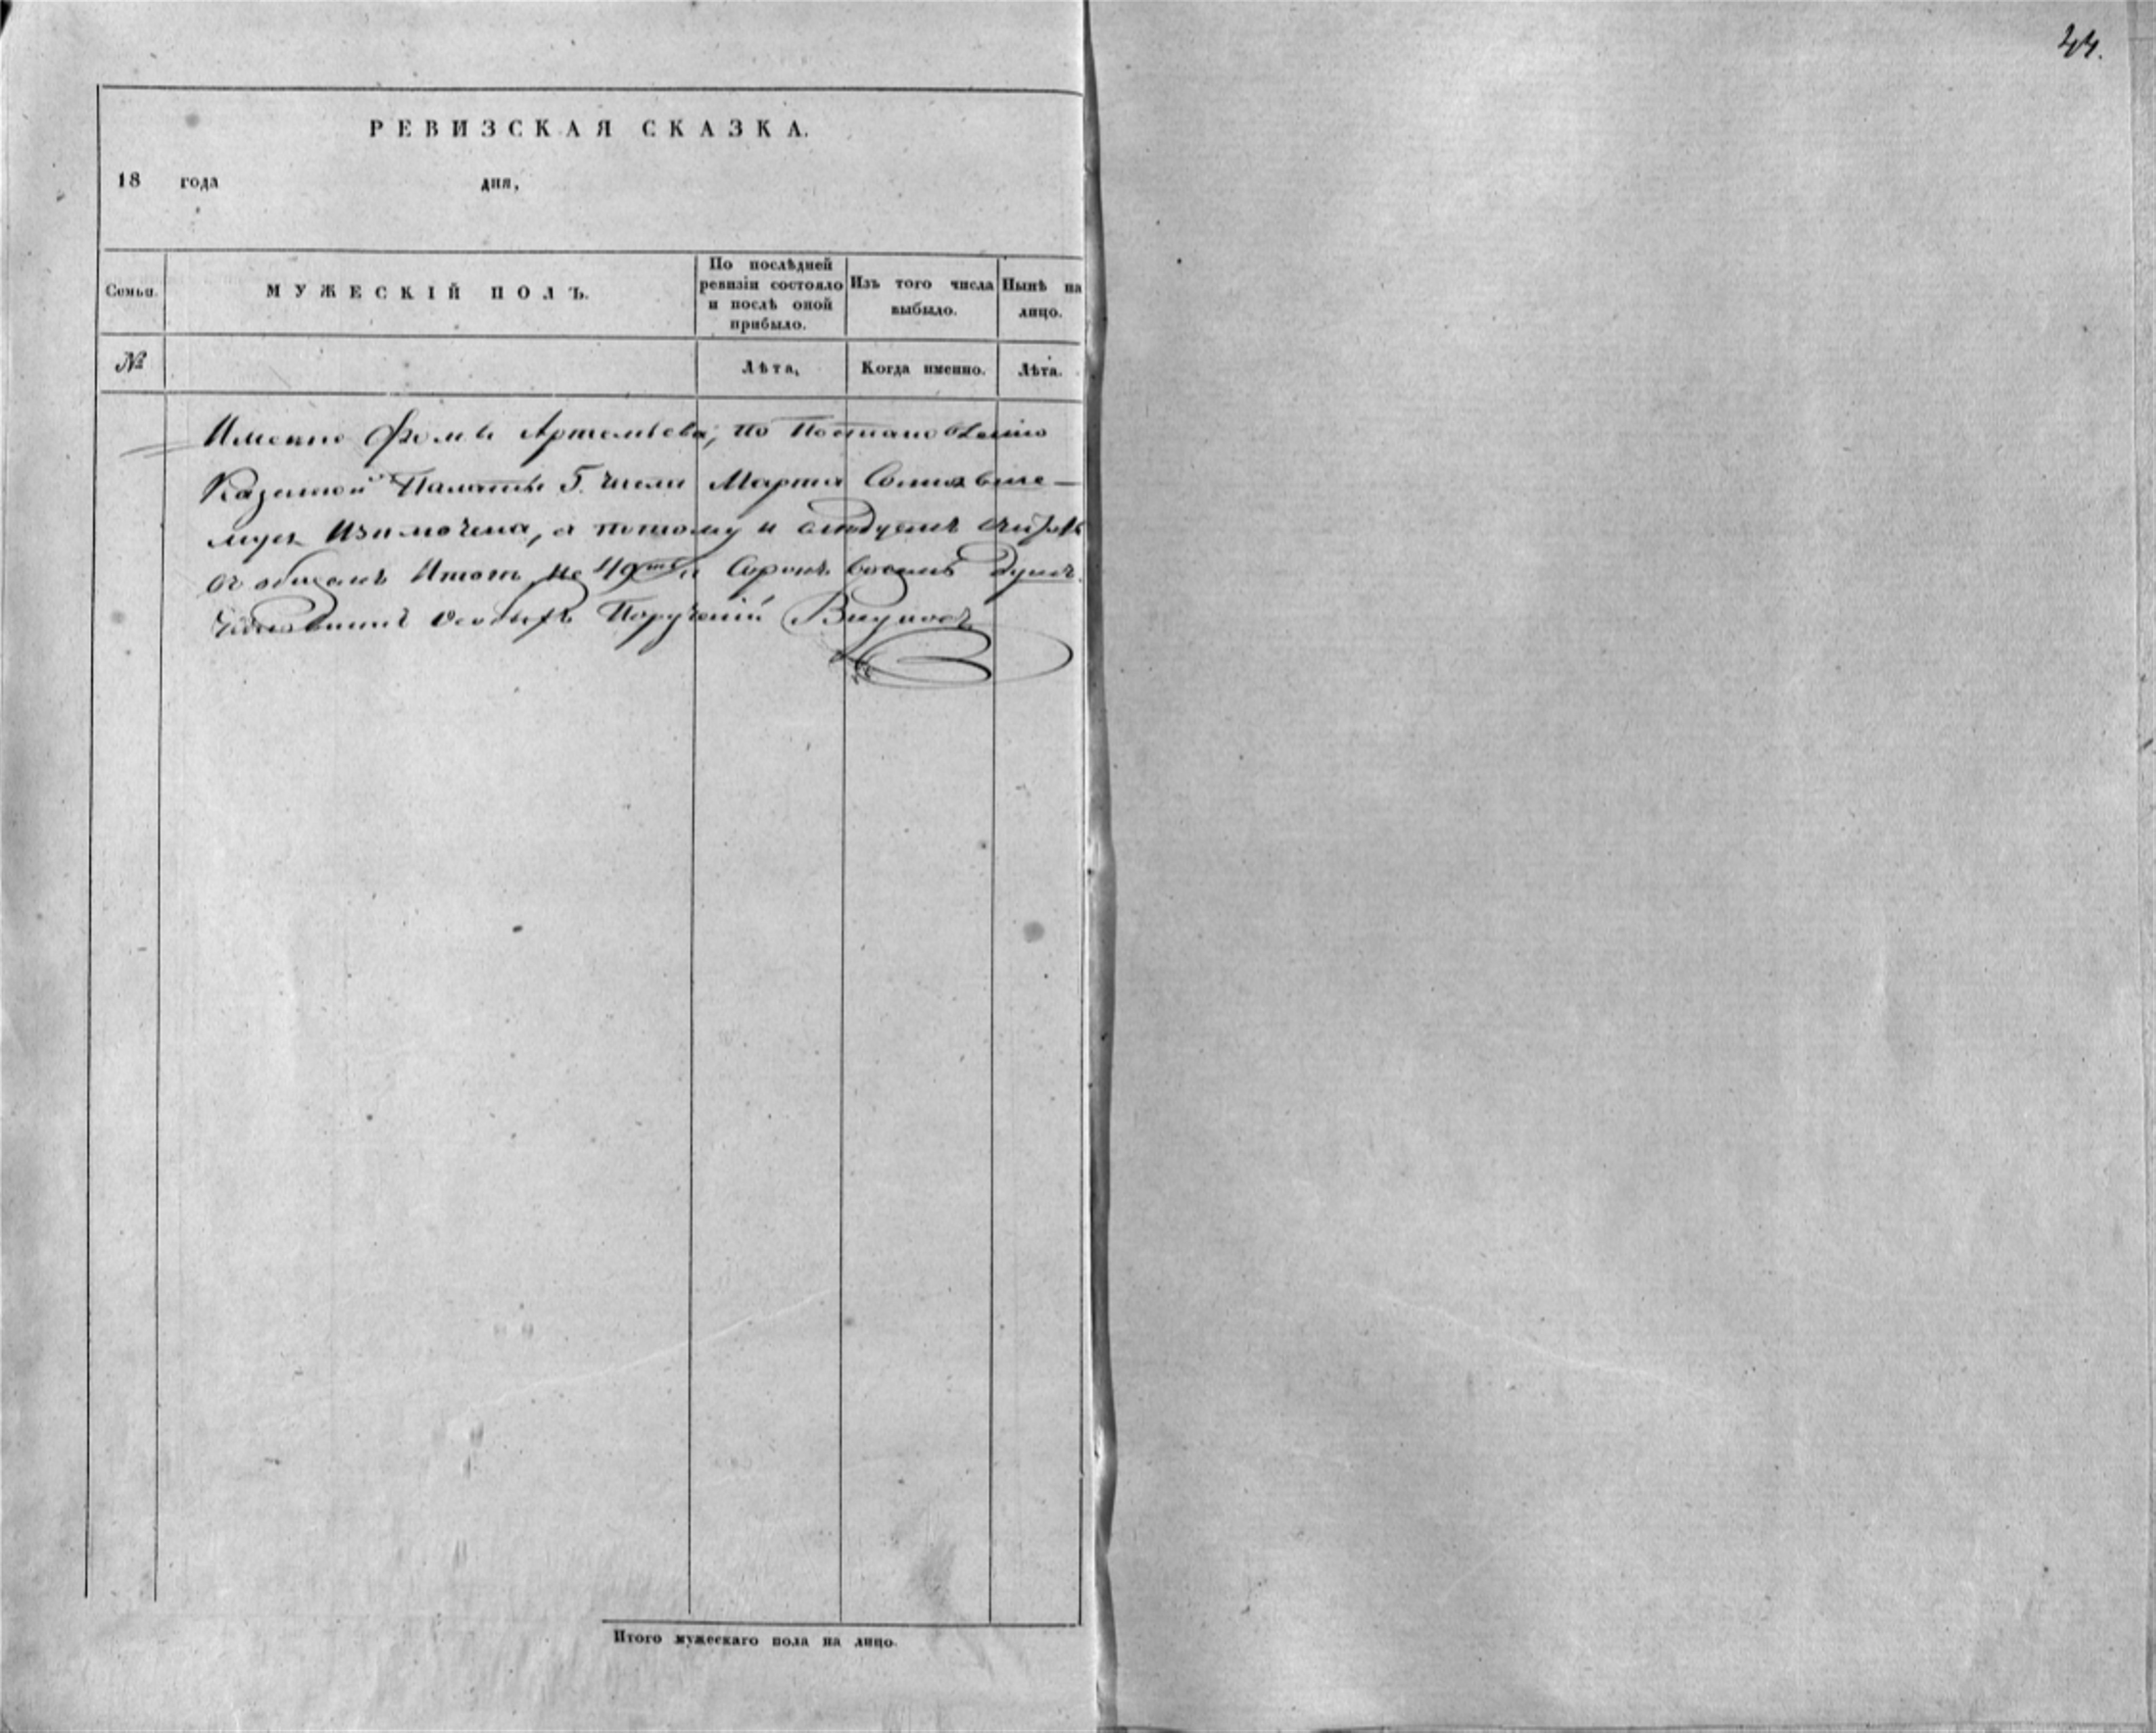 44.
РЕВИЗСКАЯ СКАЗКА.
18 года дня,
Семьи. МУЖЕСКІЙ ПОЛЪ. По послѣдней ревизіи состояло и послѣ оной прибыло. Изъ того числа выбыло. Нынѣ на лицо.
№ Лѣта, Когда именно. Лѣта.
Именно Фомы Артемьева, по Постановленію
Казенной Палаты 5. числа Марта
исключена, а потому и слѣдуетъ
въ общемъ Итогѣ не 49ть а Сорокъ восемь душъ.
Чиновникъ Особыхъ Порученій
Итого мужескаго пола на лицо.